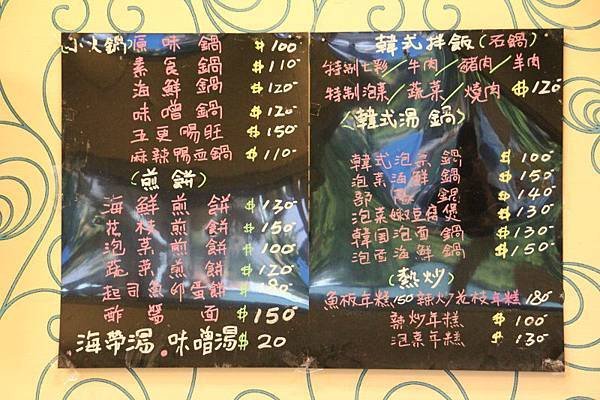 小火鍋 原味鍋 $100
素食鍋 $110
海鮮鍋 $120
味噌鍋 $120
五更腸旺 $150
麻辣鴨血鍋 $110
(煎餅)
海鮮煎餅 $130
花枝煎餅 $150
泡菜煎餅 $100
蔬菜煎餅 $120
起司魚卵蛋餅
酢醬面 $150
.海帶湯.味噌湯 $20
韓式拌飯(石鍋)
特制七彩/牛肉/豬肉/羊肉
特制泡菜/蔬菜/燒肉 $120
(韓式湯鍋)
韓式泡菜鍋 $100
泡菜海鮮鍋 $150
部隊鍋 $140
泡菜嫩豆腐煲 $130
韓国泡面鍋 $130
泡面海鮮鍋 $150
(熱炒)
魚板年糕150 辣炒花枝年糕180
辣炒年糕 $100
泡菜年糕 $130